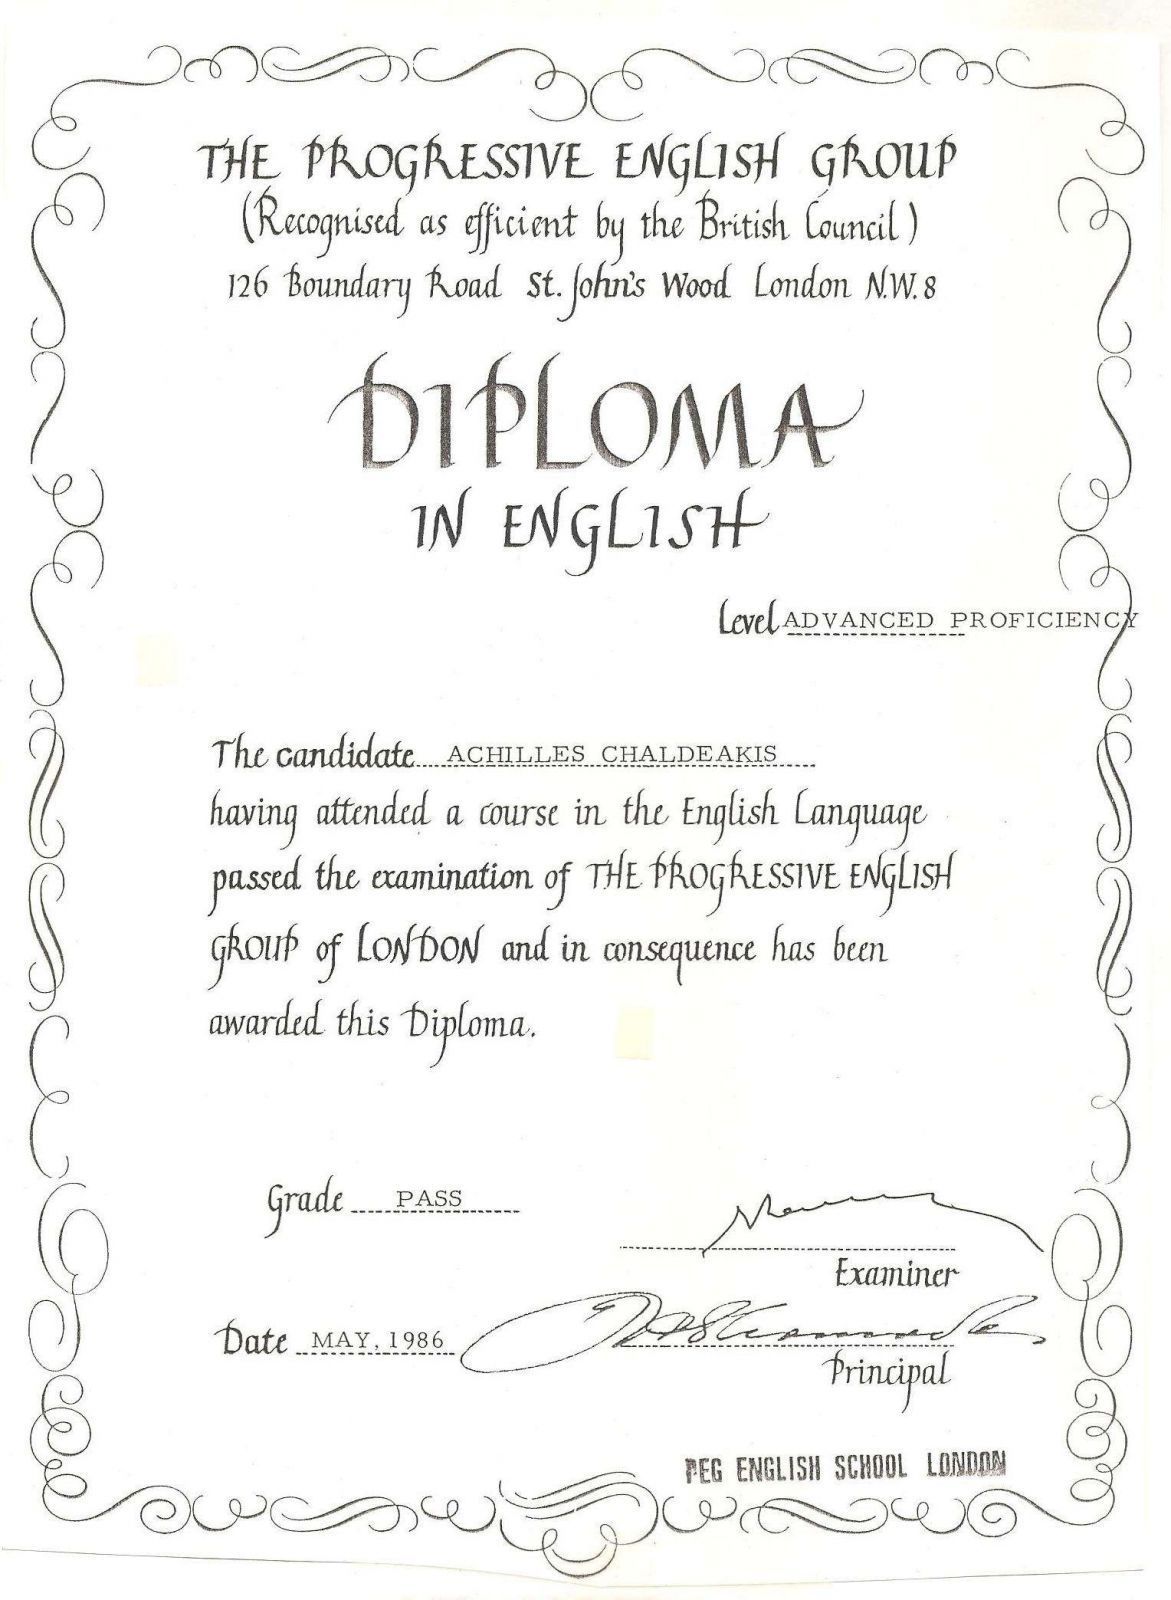 THE PROGRESSIVE ENGLISH GROUP
(Recognised as efficient by the British Council)
126 Boundary Road St. John's Wood London N.W.8
DIPLOMA
IN ENGLISH
Level ADVANCED PROFICIENCY
The candidate ACHILLES CHALDEAKIS
having attended a course in the English Language
passed the examination of THE PROGRESSIVE ENGLISH
GROUP of LONDON and in consequence has been
awarded this Diploma.
Grade PASS
Examiner
Date MAY, 1986
Principal
PEG ENGLISH SCHOOL LONDON